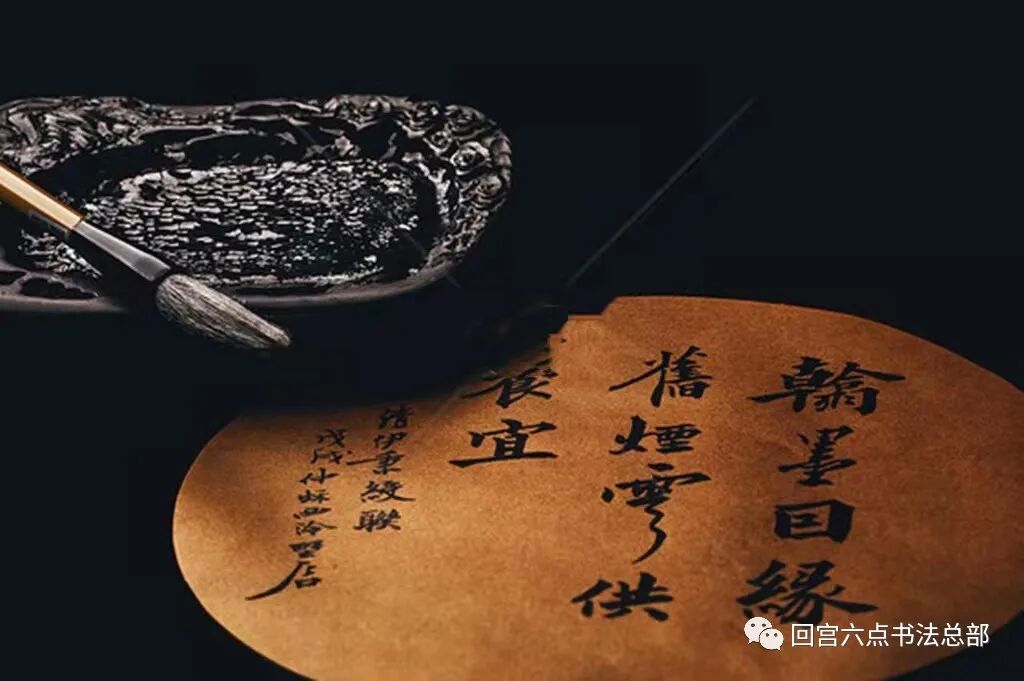 翰墨囙緣
舊煙雲供
養宜
清伊秉綬聯
戊戌仲秌西泠
回宫六点书法总部